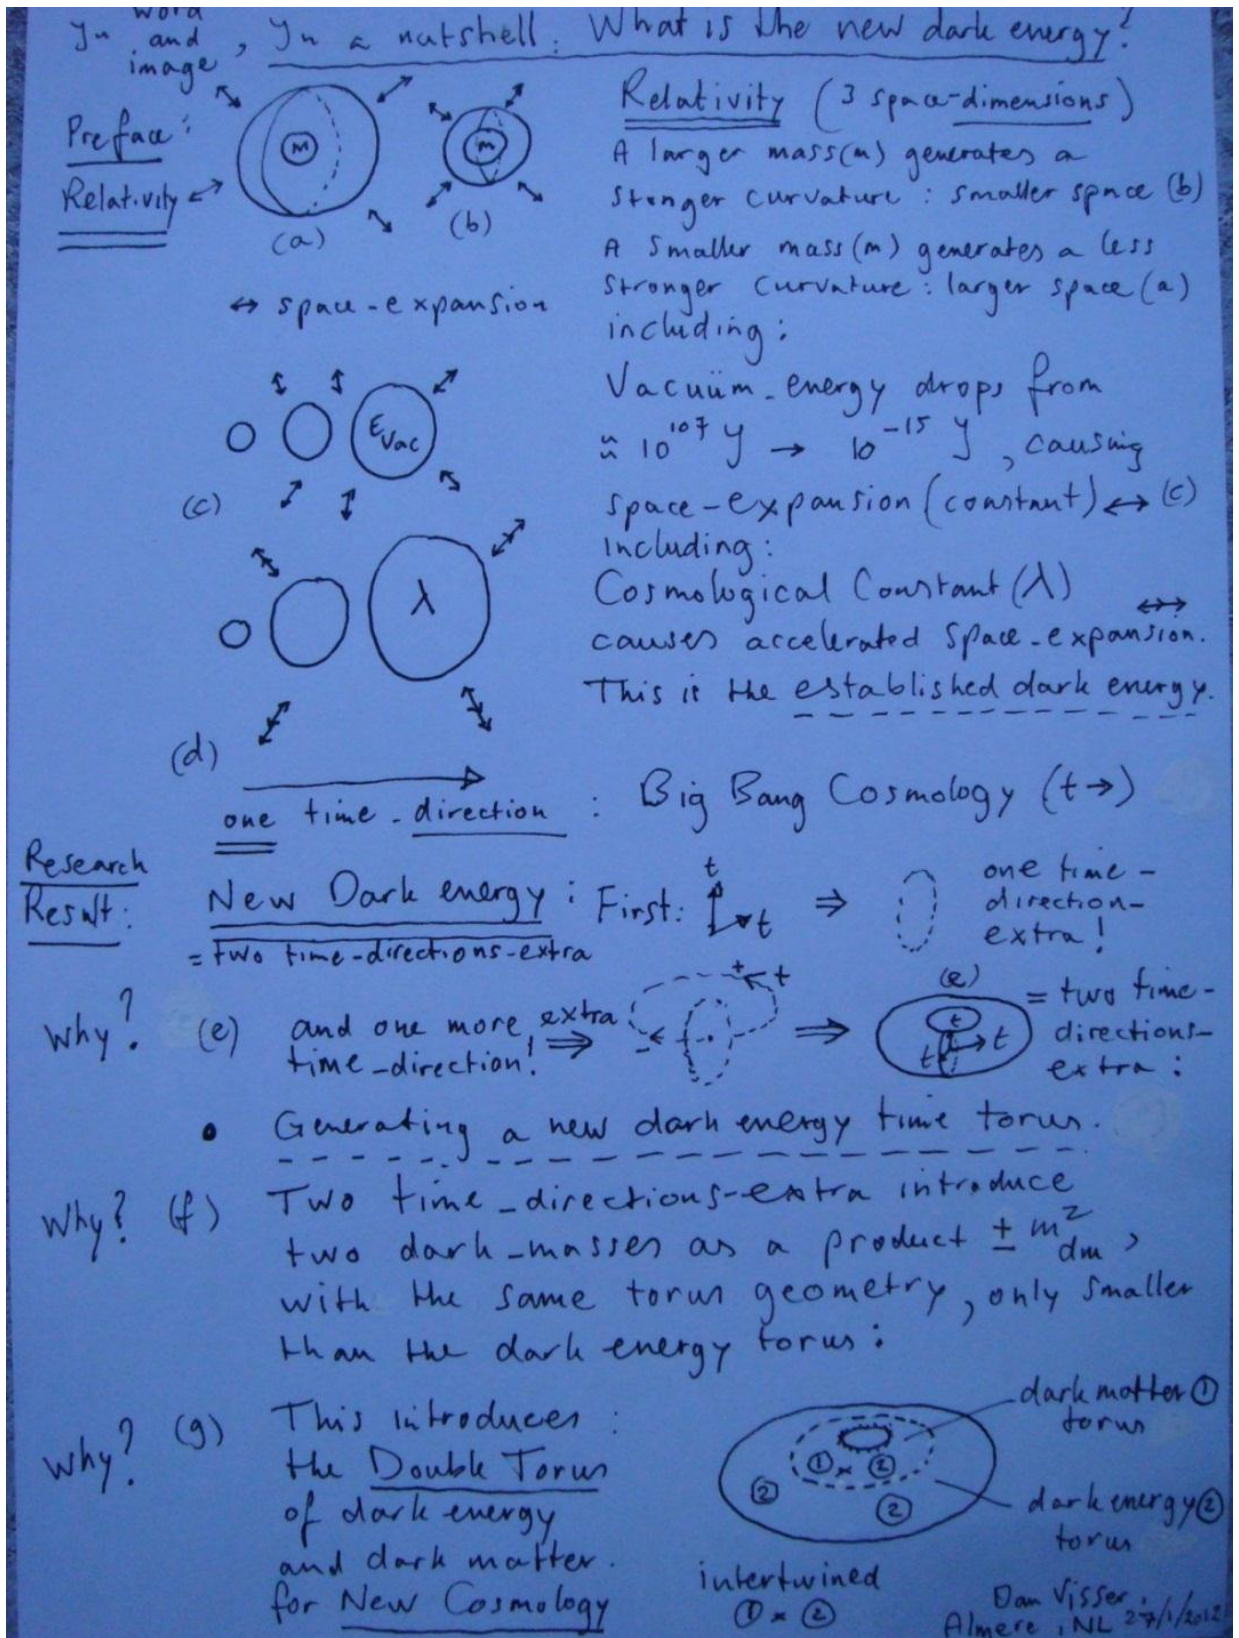 In word and image, In a nutshell: What is the new dark energy?
Preface:
Relativity
m
(a)
m
(b)
↔ space-expansion
Relativity (3 space-dimensions)
A larger mass(m) generates a
stonger curvature: smaller space (b)
A smaller mass(m) generates a less
stronger curvature: larger space (a)
including:
Vacuüm-energy drops from
≈ 10^107 y → 10^-15 y, causing
space-expansion (constant) ↔ (c)
including:
Cosmological Constant (λ)
causes accelerated space-expansion.
This is the established dark energy.
εvac
(c)
λ
(d)
one time-direction : Big Bang Cosmology (t→)
Research
Result:
New Dark energy: First: t t ⇒ one time-
direction-
extra!
= two time-directions-extra
Why? (e) and one more extra
time-direction! ⇒ + t - ⇒ (e) t t t = two time-
directions-
extra:
• Generating a new dark energy time torus.
Why? (f) Two time-directions-extra introduce
two dark-masses as a product ± m²dm,
with the same torus geometry, only smaller
than the dark energy torus:
Why? (g) This introduces:
the Double Torus
of dark energy
and dark matter.
for New Cosmology
dark matter ①
torus
① × ②
② ②
dark energy ②
torus
intertwined
① × ②
Dan Visser,
Almere, NL 27/1/2012